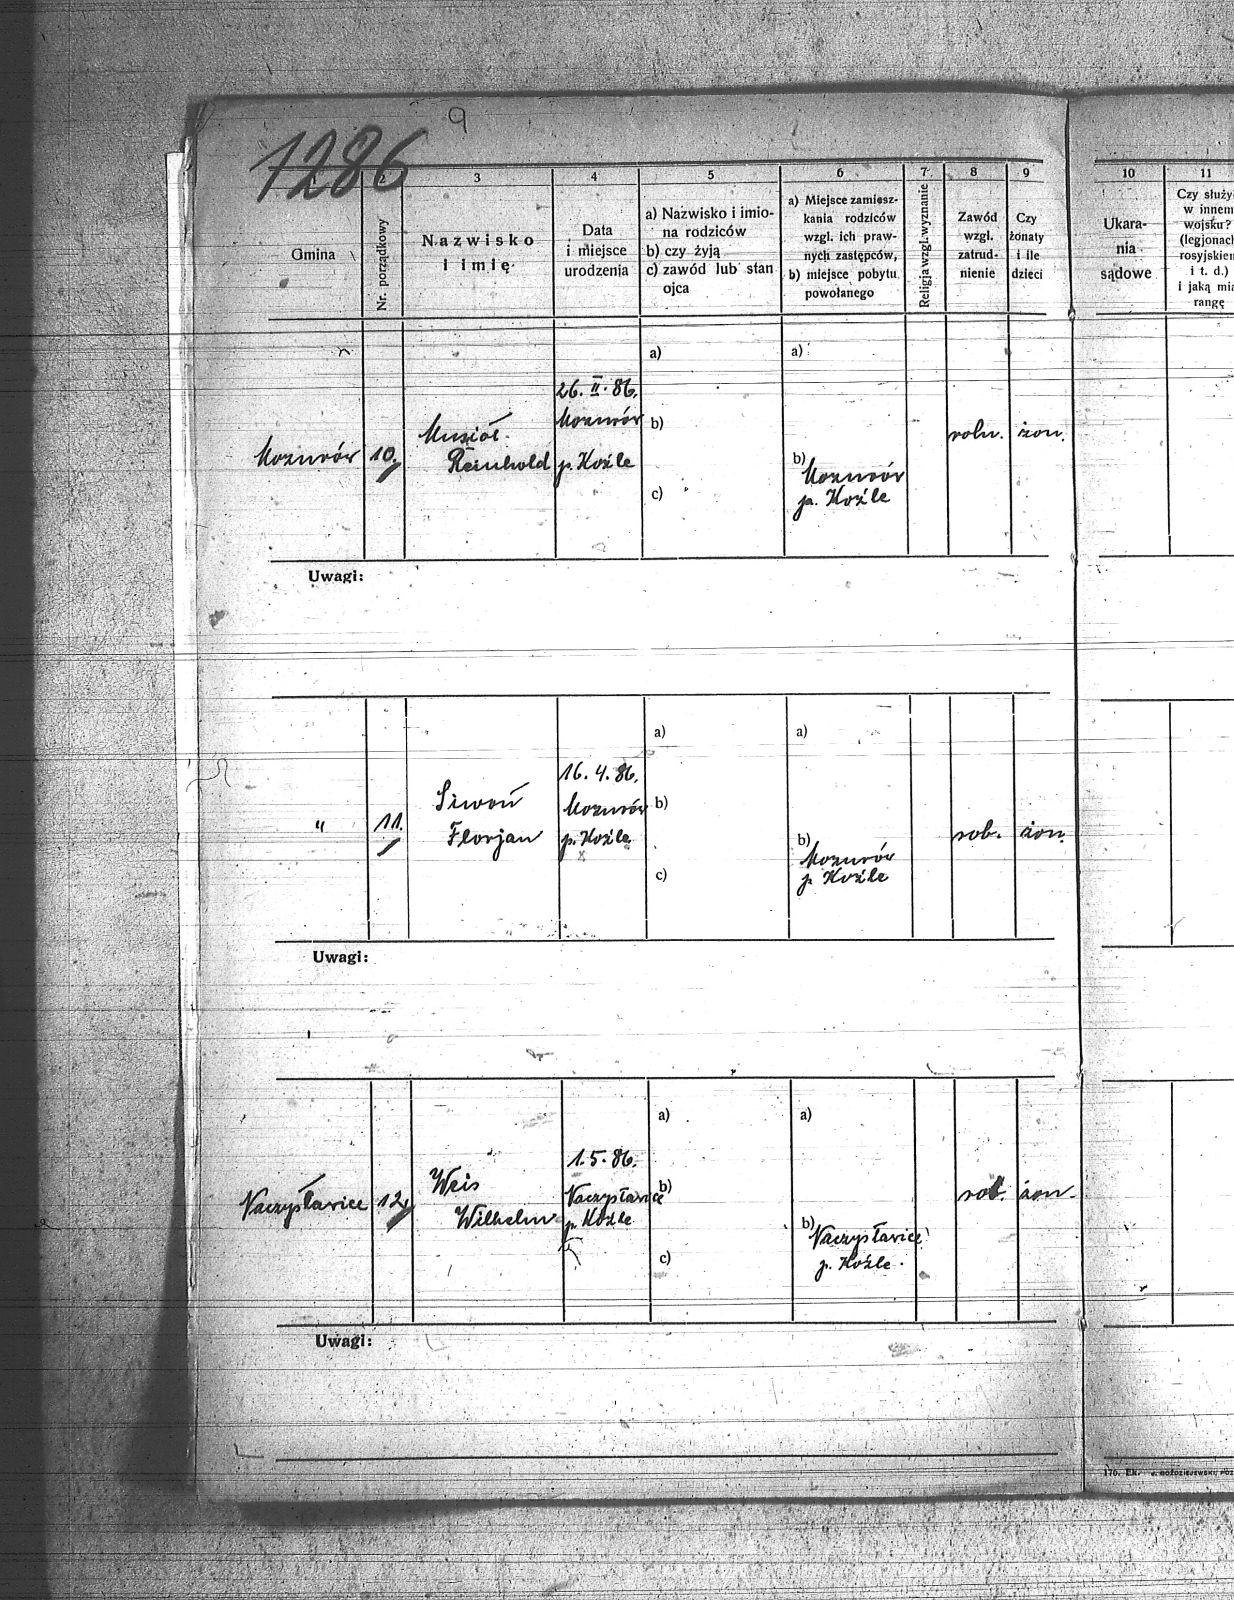 9
1286
2
3
4
5
6
7
8
9
10
11
Gmina
Nr. porządkowy
Nazwisko
i imię
Data
i miejsce
urodzenia
a) Nazwisko i imio-
na rodziców
b) czy żyją
c) zawód lub stan
ojca
a) Miejsce zamiesz-
kania rodziców
wzgl. ich praw-
nych zastępców,
b) miejsce pobytu
powołanego
Religja wzgl. wyznanie
Zawód
wzgl.
zatrud-
nienie
Czy
żonaty
i ile
dzieci
Ukara-
nia
sądowe
Czy służy
w innem
wojsku?
(legjonach
rosyjskiem
i t. d.)
i jaką mia
rangę
10.
Musioł
Reinhold
26. II. 86.
p. Koźle
a)
b)
c)
a)
b)
p. Koźle
roln.
żon.
Uwagi:
"
11.
Siwoń
Florjan
16. 4. 86.
p. Koźle
a)
b)
c)
a)
b)
p. Koźle
rob.
żon.
Uwagi:
Naczysławice
12.
Weis
Wilhelm
1. 5. 86.
Naczysławice
p. Koźle
a)
b)
c)
a)
b)
Naczysławice
p. Koźle.
rob.
żon.
Uwagi:
170. Ek.